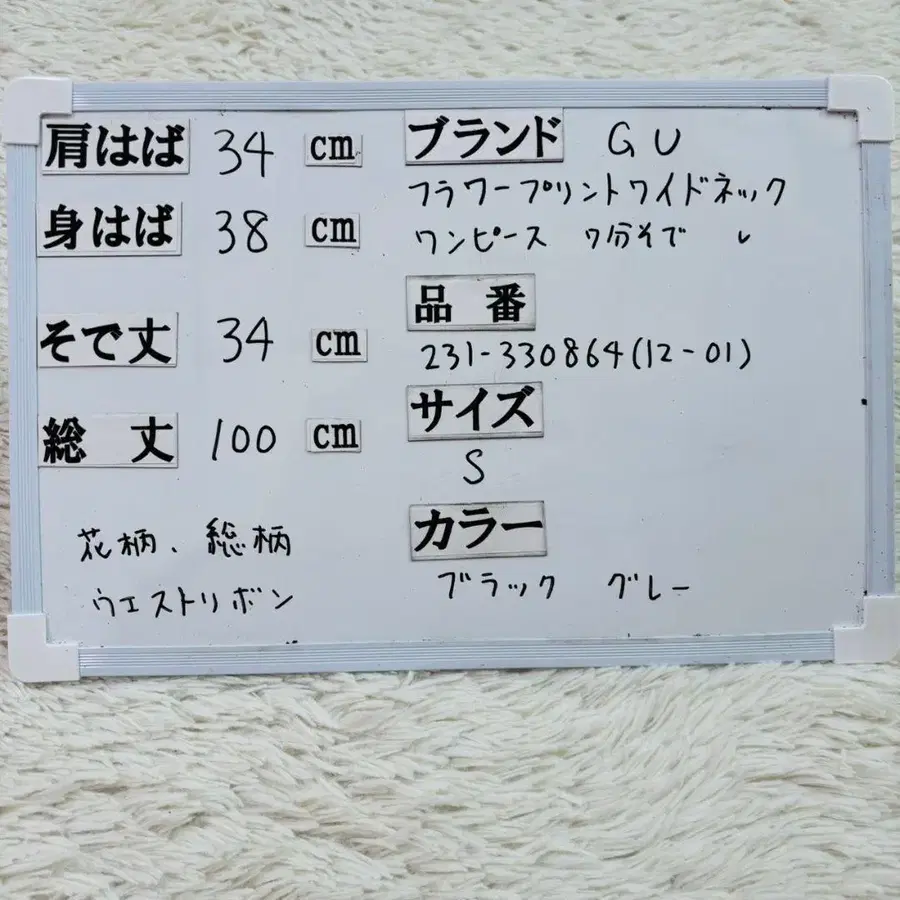 肩はば 34 cm
身はば 38 cm
そで丈 34 cm
総 丈 100 cm
花柄、総柄
ウエストリボン
ブランド GU
フラワープリントワイドネック
ワンピース 7分そで
品 番
231-330864(12-01)
サイズ
S
カラー
ブラック グレー